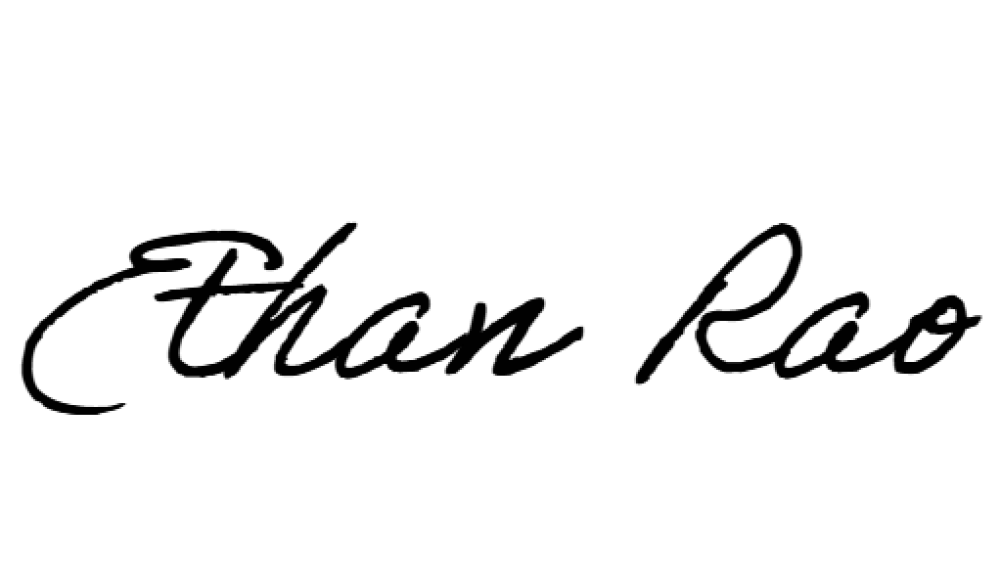 Ethan Rao